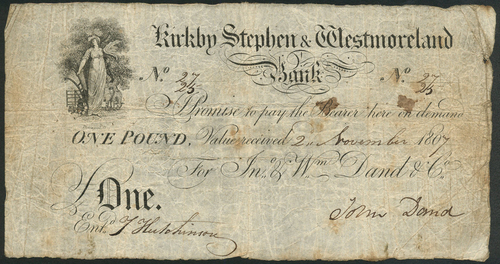 Kirkby Stephen & Westmoreland
Bank
No. 27/25 No. 27/25
I Promise to pay the Bearer here on demand
ONE POUND, Value received 2 November 1807
For Jno. & Wm. Dand & Co.
£ One.
John Dand
Entd. J Hutchinson